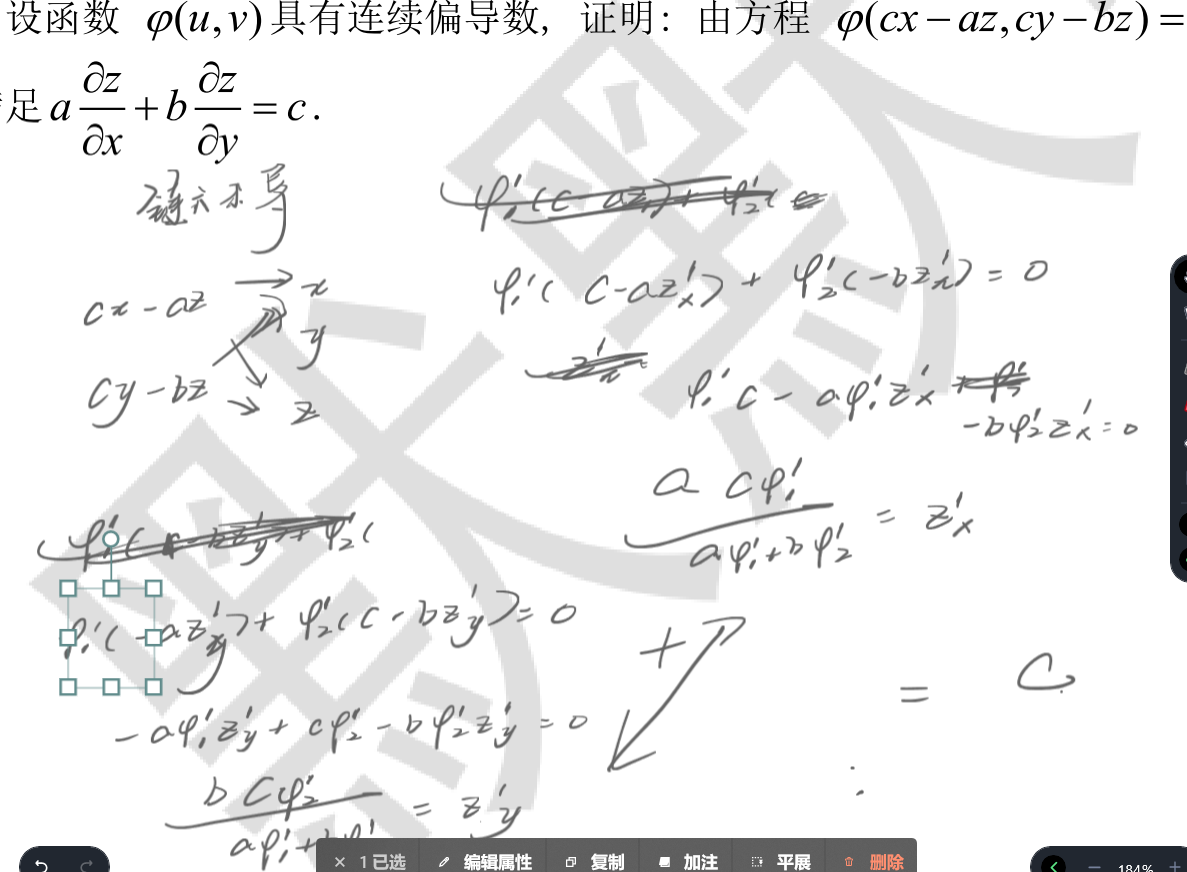 设函数 φ(u,v)具有连续偏导数，证明：由方程 φ(cx−az,cy−bz)=
足 a ∂z/∂x + b ∂z/∂y = c.
φ₁'(c−az
φ₂'(
cx−az → x
y
cy−bz → z
φ₁'(c−az'ₓ)+φ₂'(−bz'ₓ)=0
φ₁'c−aφ₁'z'ₓ
−bφ₂'z'ₓ=0
a cφ₁' / (aφ₁'+bφ₂') = z'ₓ
φ₂'(
φ₁'(−az'y)+φ₂'(c−bz'y)=0
−aφ₁'z'y+cφ₂'−bφ₂'z'y=0
b cφ₂' / = z'y
aφ₁'+
+
= C
1 已选
编辑属性
复制
加注
平展
删除
184%